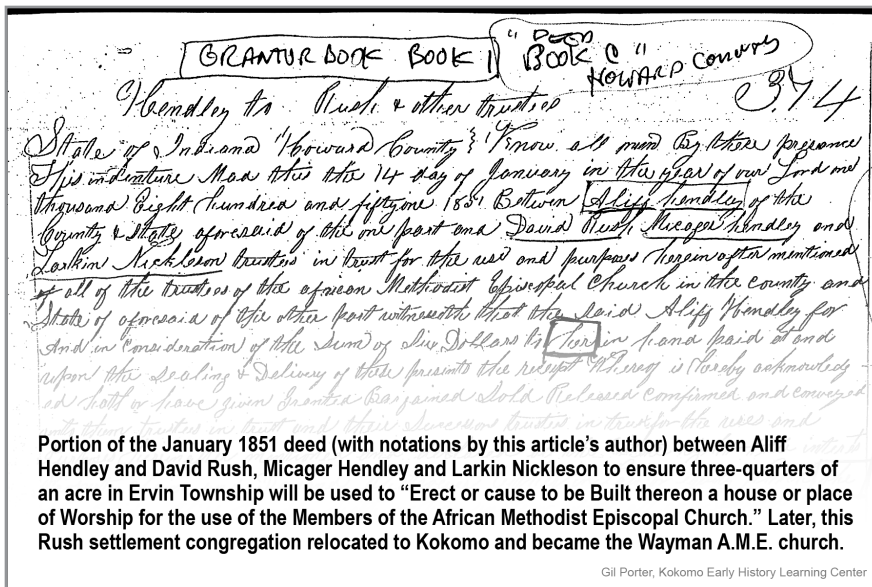 GRANTUR BOOK BOOK 1
" DEED
BOOK C "
HOWARD County
374
Hendley to Rush & other trustees
State of Indiana Howard County } Know all men By these presance
This indenture Mad this the 14 day of January in the year of our Lord one
thousand Eight hundred and fiftyone 1851 Betwen Aliff hendley of the
County & State aforesaid of the one part and David Rush Micager hendley and
Larkin Nickleson trustees in trust for the use and purposes herein after mentioned
of all of the trustees of the african Methodist Episcopal Church in the county and
State of aforesaid of the other part witnesseth that the said Aliff Hendley for
And in Consideration of the Sum of Dollars to her in hand paid at and
upon the Sealing & Delivery of these presints the receipt Whereof is hereby acknowledg-
ed hath or have given Granted Bargained Sold Released Comfirmed and conveyed
trustees in trust and their Successors trustees in trust for the uses and
Portion of the January 1851 deed (with notations by this article's author) between Aliff
Hendley and David Rush, Micager Hendley and Larkin Nickleson to ensure three-quarters of
an acre in Ervin Township will be used to “Erect or cause to be Built thereon a house or place
of Worship for the use of the Members of the African Methodist Episcopal Church.” Later, this
Rush settlement congregation relocated to Kokomo and became the Wayman A.M.E. church.
Gil Porter, Kokomo Early History Learning Center